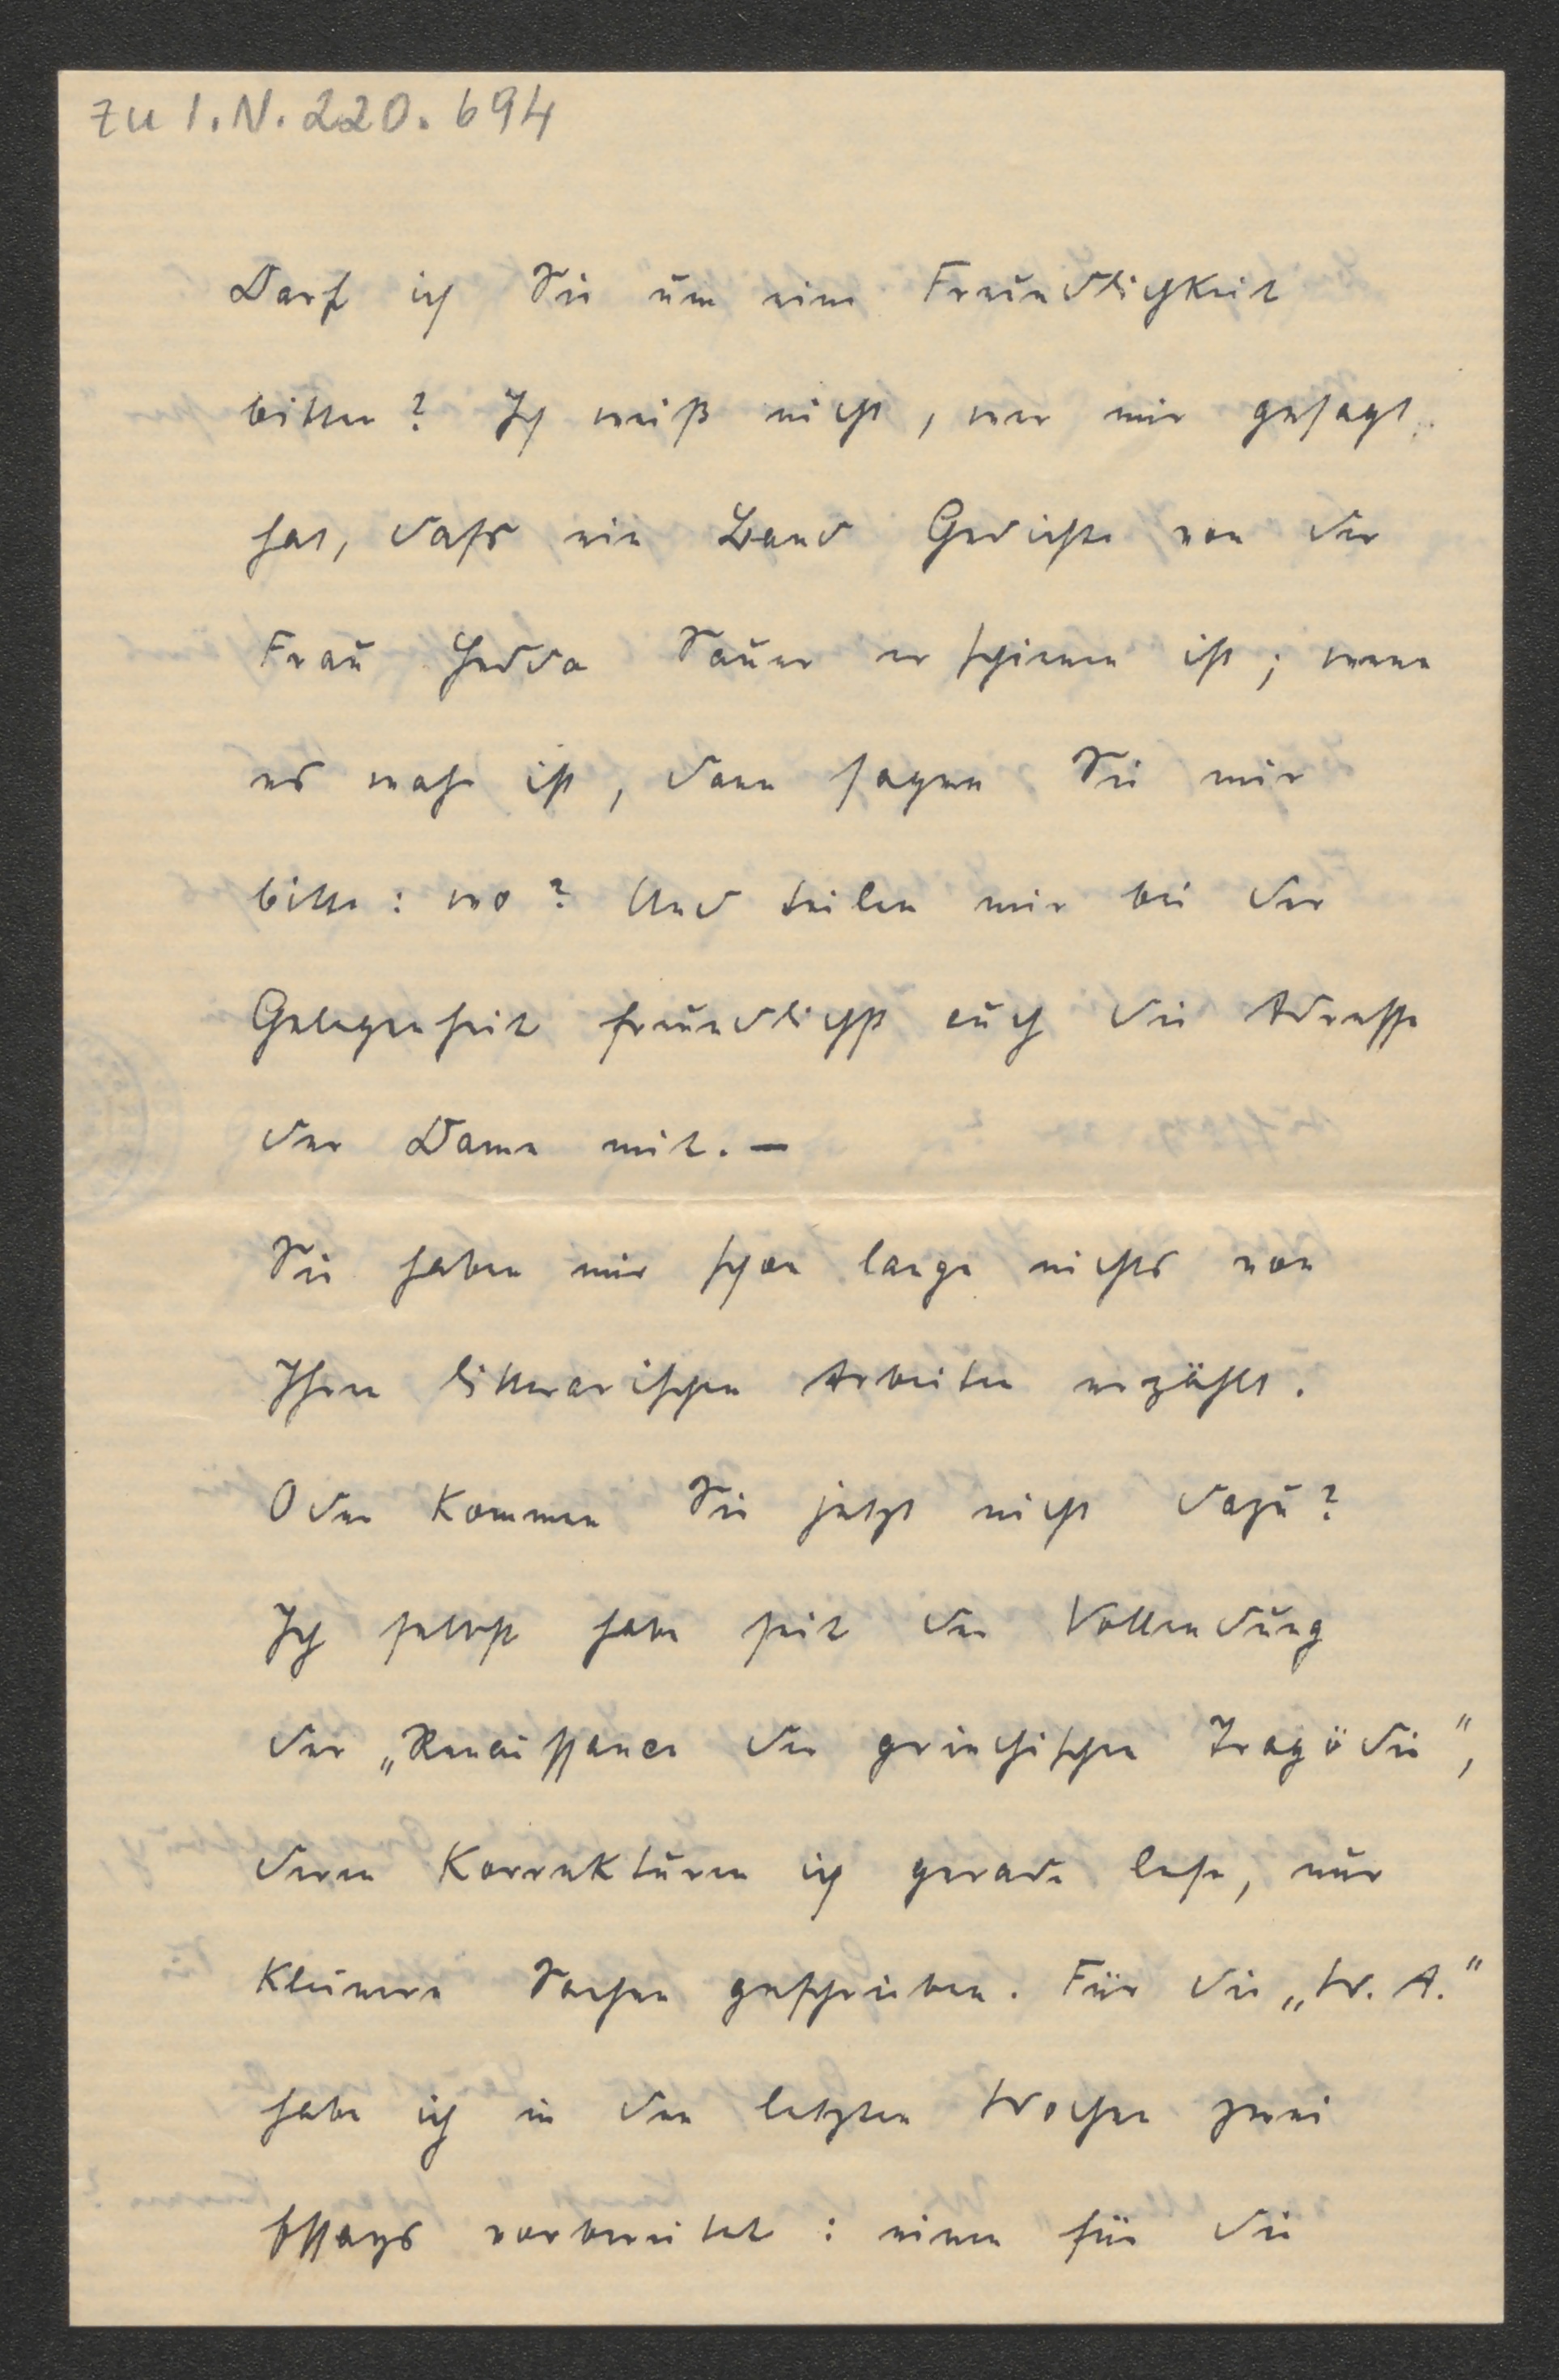 zu I.N. 220.694
Darf ich Sie um eine Freundlichkeit
bitten? Ich weiß nicht, wer mir gesagt
hat, dass ein Band Gedichte von der
Frau Hedda Sauer erschienen ist; wenn
es wahr ist, dann sagen Sie mir
bitte: wo? Und teilen mir bei der
Gelegenheit freundlichst auch die Adresse
der Dame mit. —
Sie haben mir schon lange nichts von
Ihren litterarischen Arbeiten erzählt.
Oder kommen Sie jetzt nicht dazu?
Ich selbst habe seit der Vollendung
der „Renaissance der griechischen Tragödie",
deren Korrekturen ich gerade lese, nur
kleinere Sachen geschrieben. Für die „W. A."
habe ich in den letzten Wochen zwei
Essays vorbereitet: einen für die